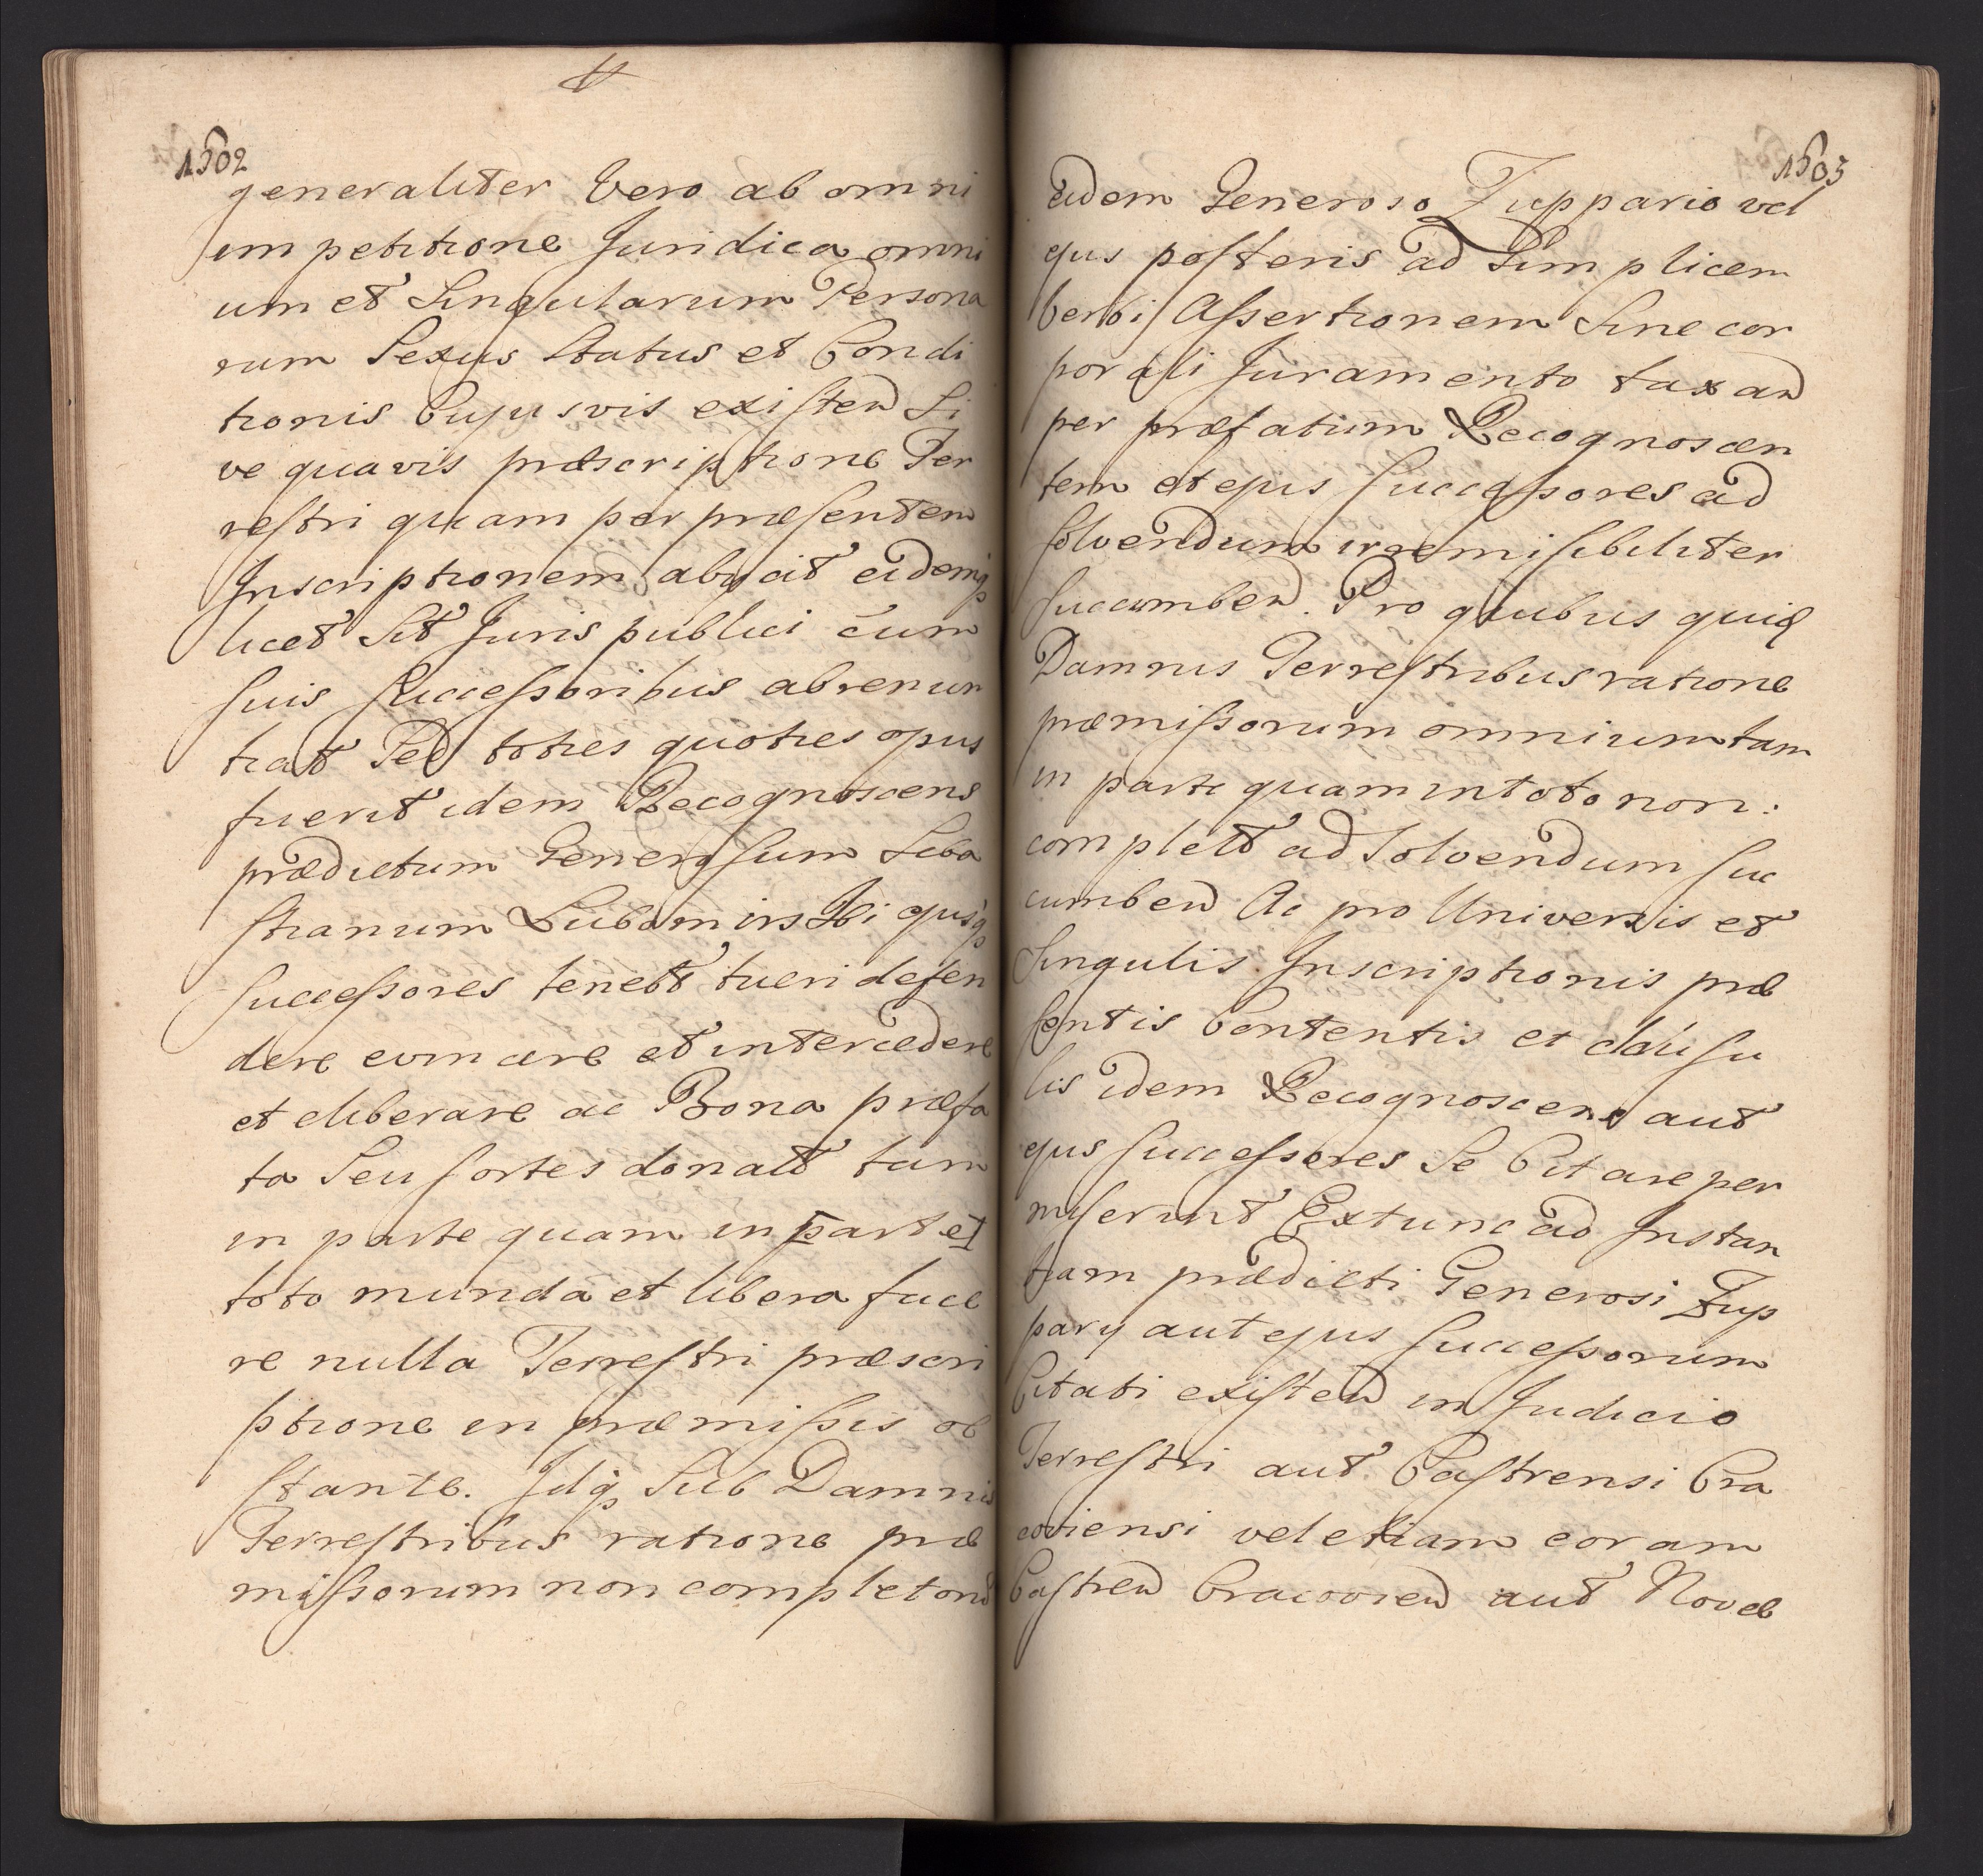 1502
generaliter Vero ab omni
impetitione Juridica omni
um et Singularum Persona
rum Sexus Status et Condi
tionis Cujusvis existen Si
ve quavis præscriptione Ter
restri quam per præsentem
Inscriptionem abijcit eidemq
licet Sit Juris publici cum
suis Successoribus abrenun
tiat Sed toties quoties opus
fuerit idem Recognoscens
prædictum Generosum Seba
stianum Lubomirski ejusq
successores tenebt tueri defen
dere evincere et intercedere
et eliberare ac Bona præfa
ta Seu sortes donatt tam
in parte quam in [parte]
toto munda et libera face
re nulla Terrestri præscri
ptione in præmissis ob
stante. Idq Sub Damnis
Terrestribus ratione præ
missorum non completorum
1503
eidem Generoso Zuppario vel
ejus posteris ad Simplicem
Verbi Assertionem Sine cor
porali Juramento taxan
per præfatum Recognoscen
tem et ejus successores ad
solvendum irremisibiliter
succumben. Pro quibus quiq
Damnis Terrestribus ratione
præmissorum omnium tam
in parte quam in toto non:
complett ad Solvendum suc
cumben Ac pro Universis et
Singulis Inscriptionis præ
sentis Contentis et clausu
lis idem Recognoscens aut
ejus successores Se Citare per
miserint Extunc ad Instan
tiam prædicti Generosi Zup
parij aut ejus successorum
Citati existen in Judicio
Terrestri aut Castrensi Cra
coviensi vel etiam coram
Castren Cracovien aut Novæ